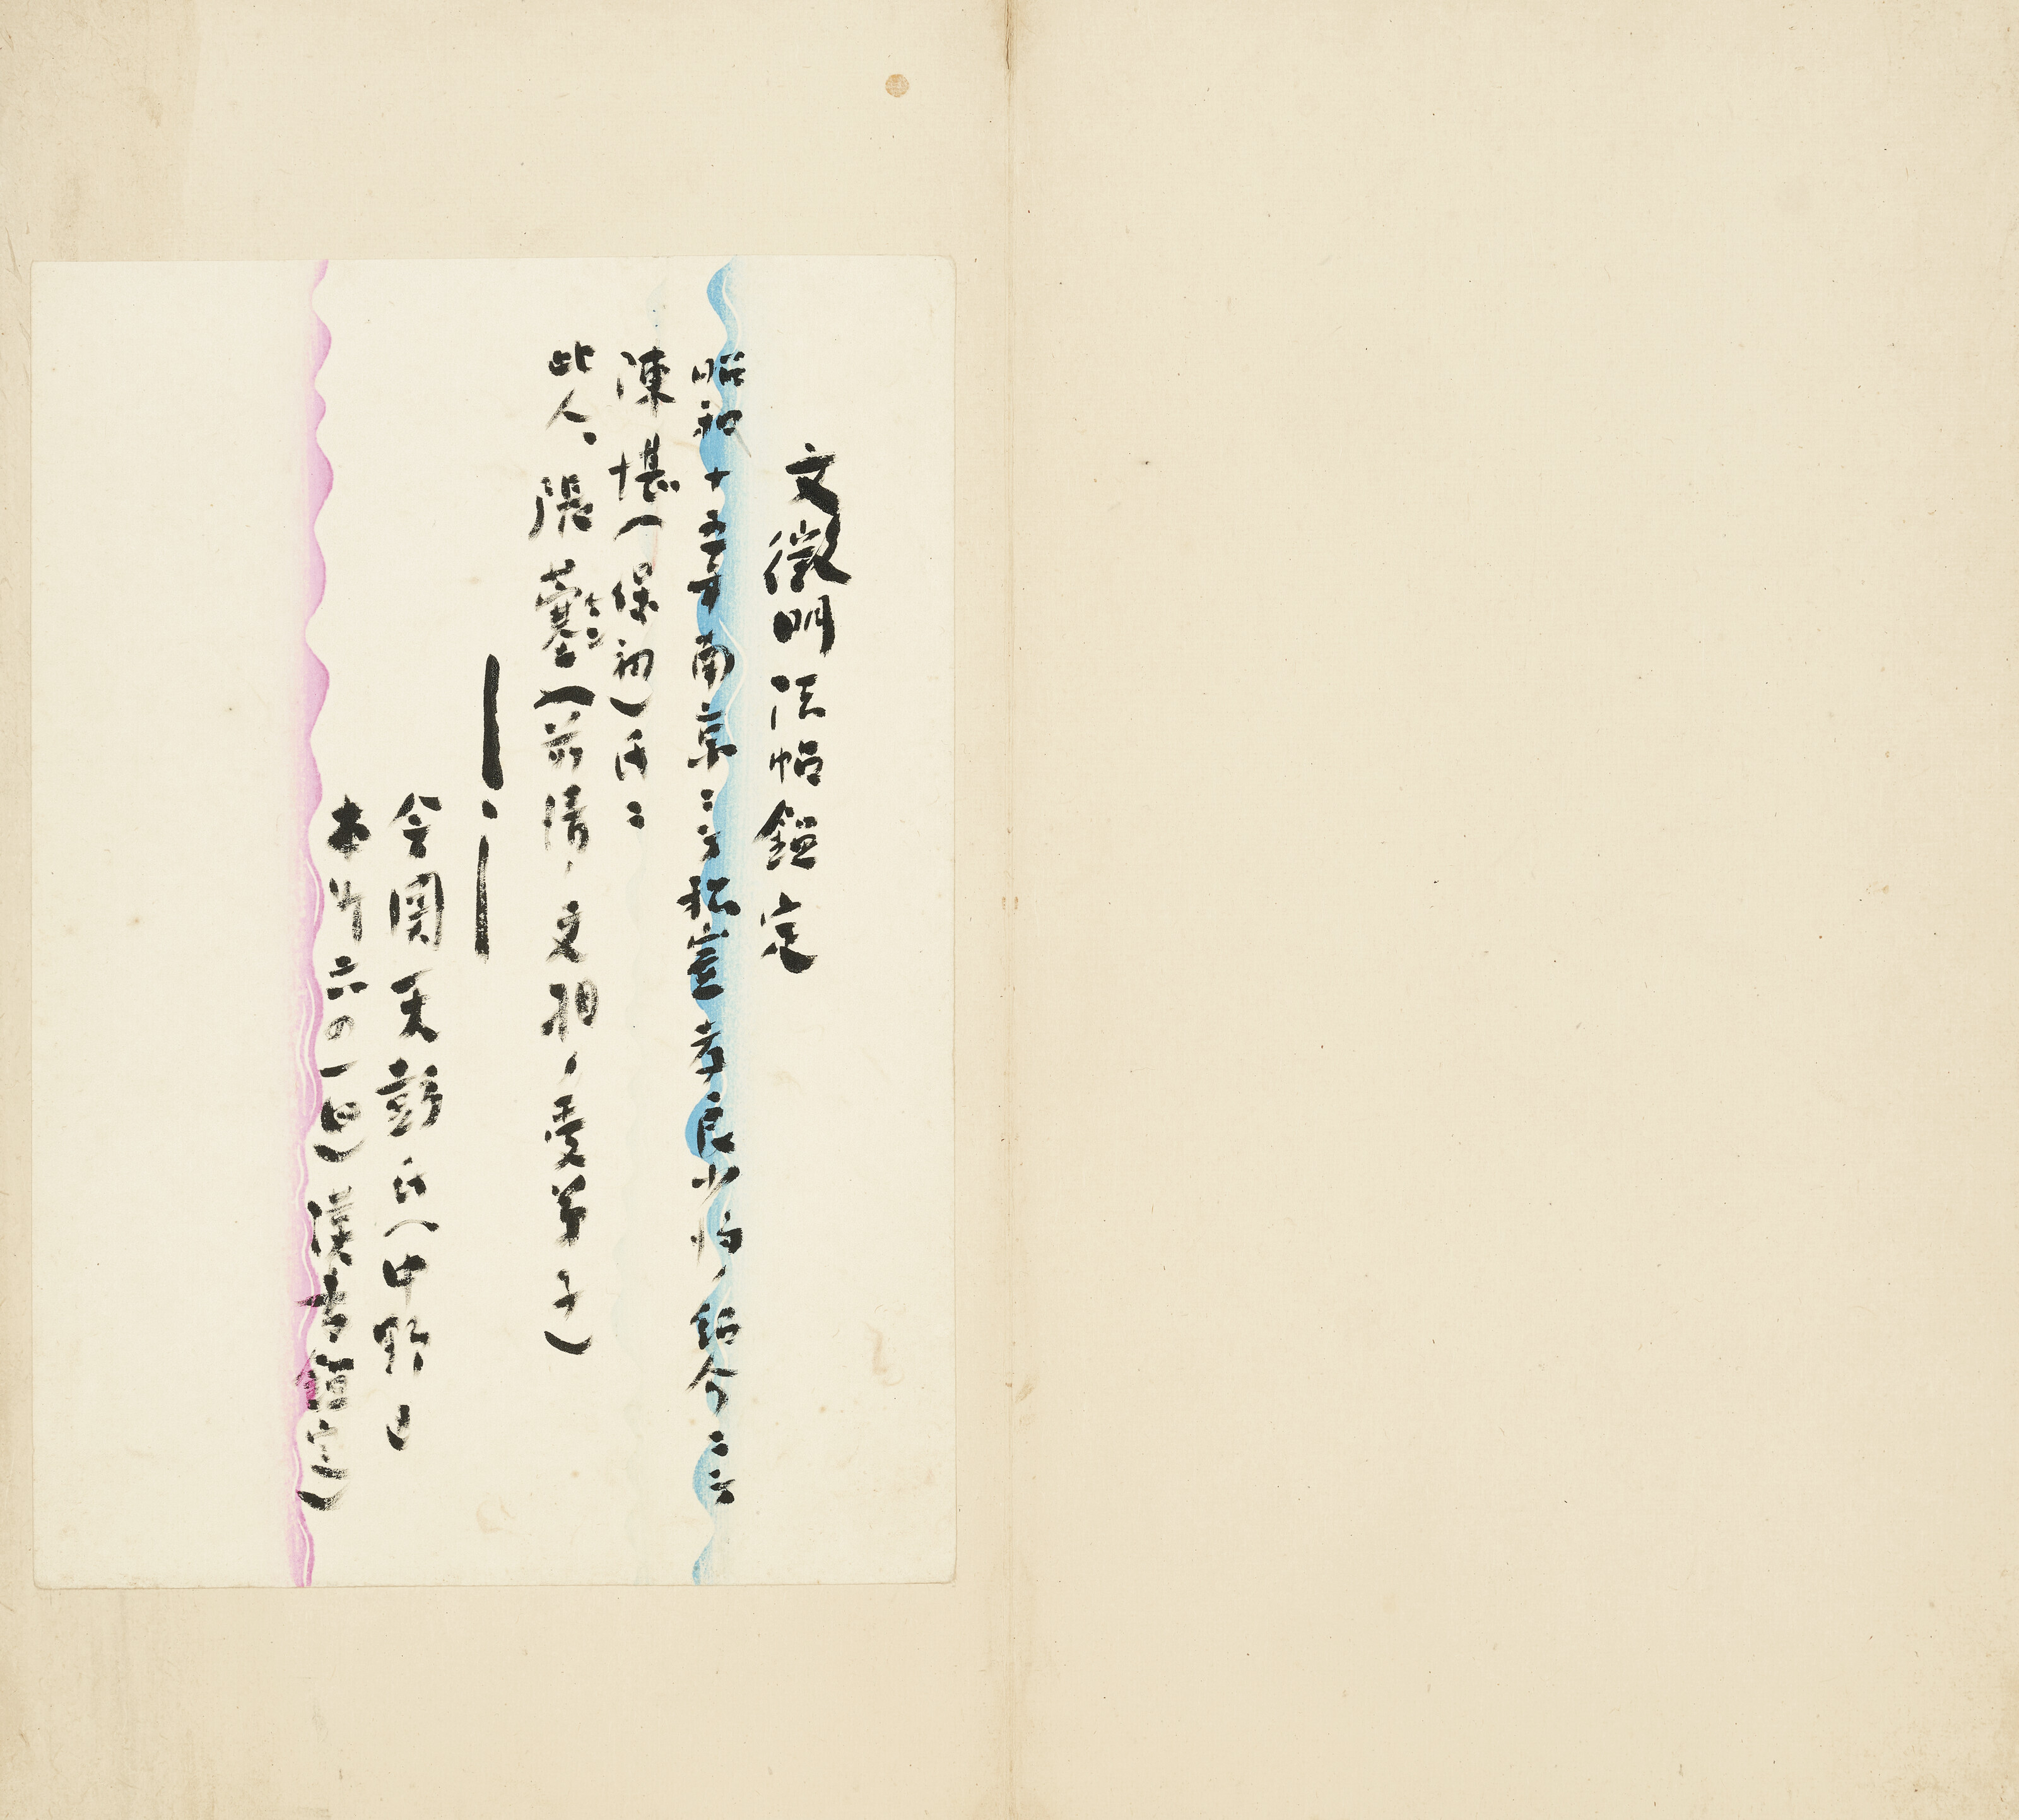 文徵明法帖鑑定
昭和十五年南京ニテ松室孝良少将ノ紹介ニテ
陳堪（保初）氏ニ
此人、張謇（前清ノ文相ノ愛弟子）
今関天彭氏（中野区
本町六の一四）漢書鑑定）